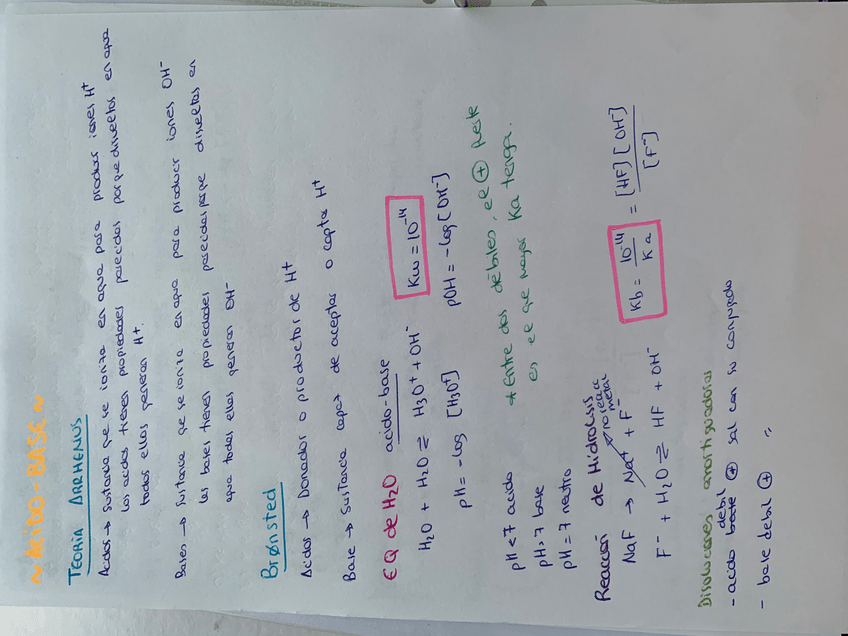 ~ ACIDO-BASE ~
TEORIA ARRHENIUS
Acidos → Sustancia que se ioniza en agua para producir iones H⁺
Los acidos tienen propiedades parecidas porque disueltos en agua
todos ellos generan H⁺.
Bases → Sustancia que se ioniza en agua para producir iones OH⁻
las bases tienen propiedades parecidas porque disueltas en
agua todas ellas generan OH⁻
Brønsted
Acidos → Donador o productor de H⁺
Base → Sustancia capaz de aceptar o captar H⁺
EQ de H₂O acido-base
H₂O + H₂O ⇌ H₃O⁺ + OH⁻ Kw = 10⁻¹⁴
pH = -log [H₃O⁺] pOH = -log [OH⁻]
pH < 7 acido
pH > 7 base
pH = 7 neutro
* Entre dos débiles, el ⊕ fuerte
es el que mayor Ka tenga.
Reacción de Hidrolisis
no reacc
metal
NaF → Na⁺ + F⁻
F⁻ + H₂O ⇌ HF + OH⁻
Kb = 10⁻¹⁴ / Ka = [HF] [OH⁻] / [F⁻]
Disoluciones amortiguadoras
- acido debil ⊕ sal con su conjugado
- base debil ⊕ "